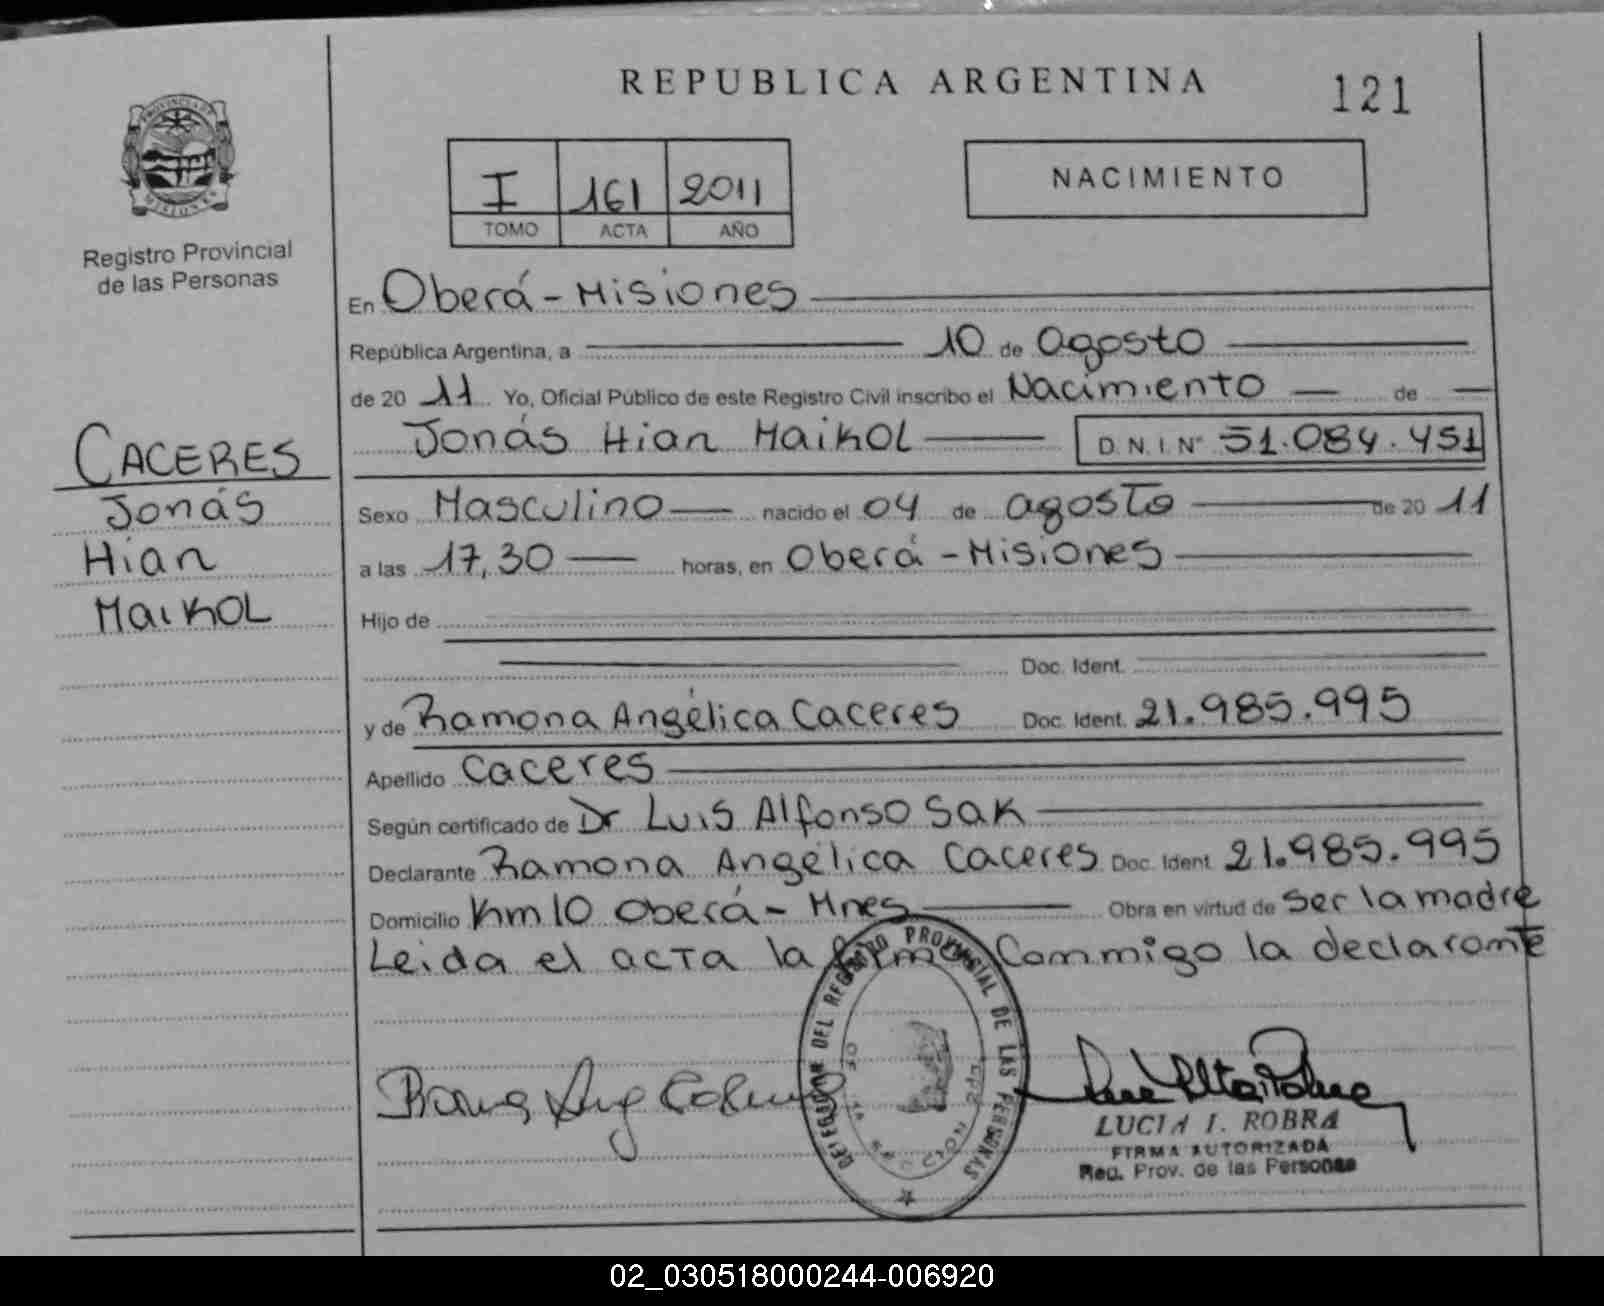 REPUBLICA ARGENTINA
121
PROVINCIA DE
MISIONES
Registro Provincial
de las Personas
I 161 2011
TOMO ACTA AÑO
NACIMIENTO
En Oberá - Misiones
República Argentina, a 10 de agosto
de 20 11 Yo, Oficial Público de este Registro Civil inscribo el Nacimiento de
Jonás Hian Maikol D.N.I. Nº 51.084.451
CACERES
Jonás
Hian
Maikol
Sexo Masculino nacido el 04 de agosto de 20 11
a las 17,30 horas, en Oberá - Misiones
Hijo de
Doc. Ident.
y de Ramona Angélica Caceres Doc. Ident. 21.985.995
Apellido Caceres
Según certificado de Dr Luis Alfonso Sak
Declarante Ramona Angélica Caceres Doc. Ident. 21.985.995
Domicilio Km 10 Oberá - Mnes Obra en virtud de ser la madre
Leida el acta la firma Conmigo la declarante
DELEGACION DEL REGISTRO PROVINCIAL DE LAS PERSONAS
LUCIA I. ROBRA
FIRMA AUTORIZADA
Reg. Prov. de las Personas
02_030518000244-006920